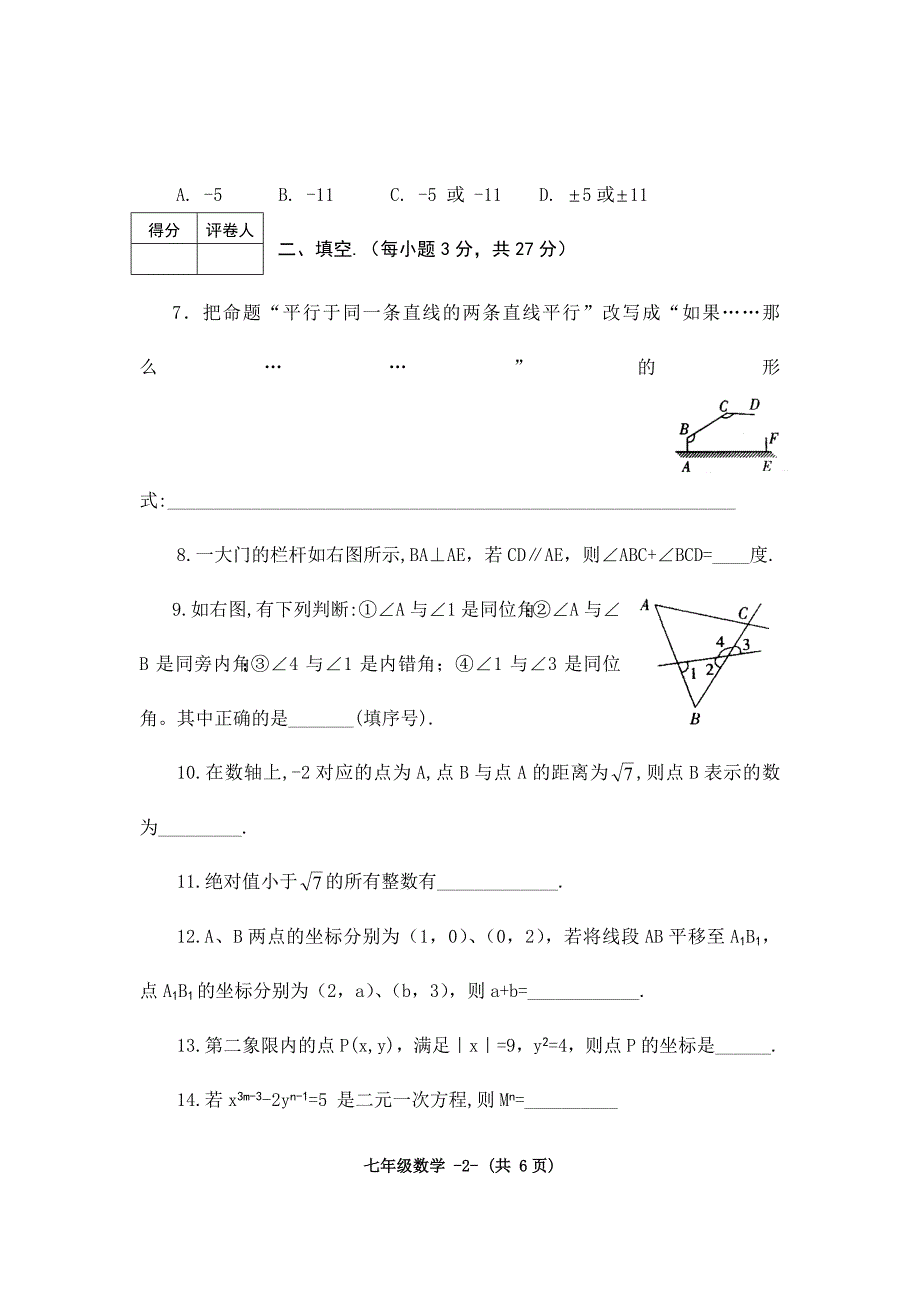 A. -5 B. -11 C. -5 或 -11 D. ±5或±11
得分 评卷人
二、填空.（每小题3分，共27分）
7．把命题“平行于同一条直线的两条直线平行”改写成“如果……那
么……”的形
C D
B F
A E
式:_____________________________________________________________
8.一大门的栏杆如右图所示,BA⊥AE，若CD∥AE，则∠ABC+∠BCD=____度.
9.如右图,有下列判断:①∠A与∠1是同位角;②∠A与∠
B是同旁内角;③∠4与∠1是内错角；④∠1与∠3是同位
角。其中正确的是_______(填序号).
A C
4 3
1 2
B
10.在数轴上,-2对应的点为A,点B与点A的距离为√7,则点B表示的数
为_________.
11.绝对值小于√7的所有整数有_____________.
12.A、B两点的坐标分别为（1，0）、（0，2），若将线段AB平移至A₁B₁，
点A₁B₁的坐标分别为（2，a）、（b，3），则a+b=____________.
13.第二象限内的点P(x,y)，满足|x|=9，y²=4，则点P的坐标是______.
14.若x³ᵐ⁻³-2yⁿ⁻¹=5 是二元一次方程,则Mⁿ=__________
七年级数学 -2- (共 6页)